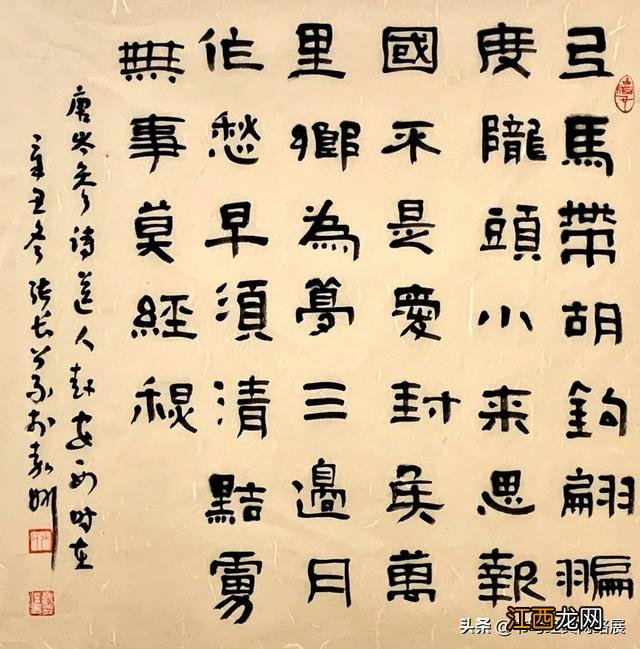 上馬帶胡鉤翩翩
度隴頭小来思報
國不是愛封侯萬
里鄉為夢三邊月
作愁早須清黠虜
無事莫經秋
唐岑參詩送人赴安西时在
辛丑冬張長於嘉州
头条
江西龙网